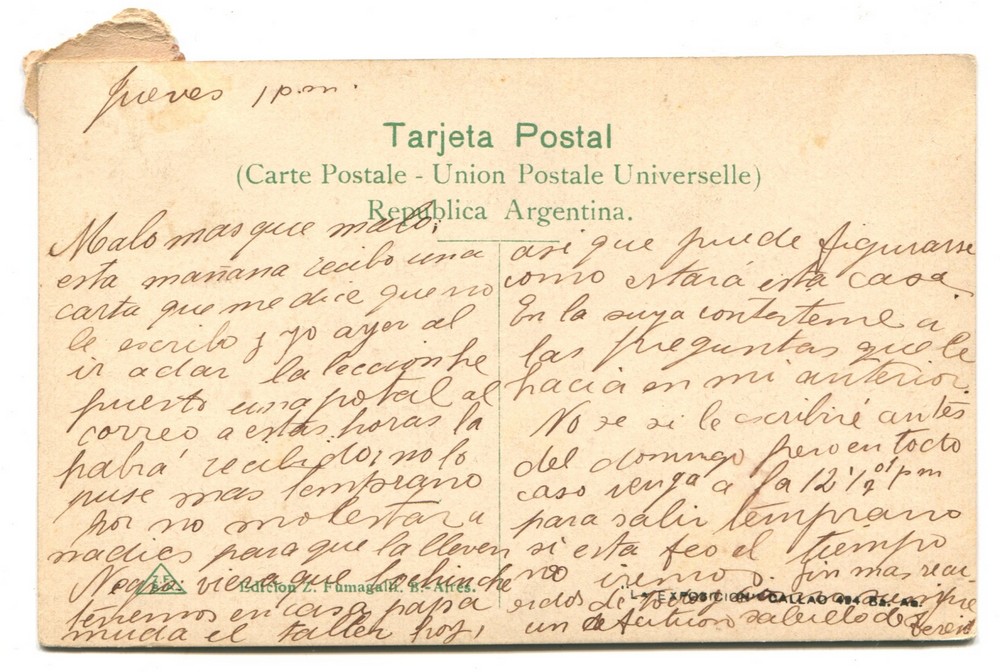 Jueves 1 p.m.
Tarjeta Postal
(Carte Postale - Union Postale Universelle)
Republica Argentina.
Malo mas que malo;
esta mañana recibo una
carta que me dice que no
le escribo y yo ayer al
ir a dar la leccion he
puesto una postal al
correo a estas horas la
habrá recibido, no lo
puse mas temprano
por no molestar a
nadies para que la lleven
viera que
tenemos en casa, papa
muda el taller hoy,
asi que puede figurarse
como estará esta casa.
En la suya contesteme a
las preguntas que le
hacia en mi anterior.
No se si le escribiré antes
del domingo pero en todo
caso venga a la 12 1/2 pm
para salir temprano
si esta feo el tiempo
no iremos. Sin mas recu-
erdos de
un saludo de
Z.F.
B.A.
Edicion Z. Fumagalli. B.-Aires.
"LA EXPOSICION" CALLAO 494 Bs. As.